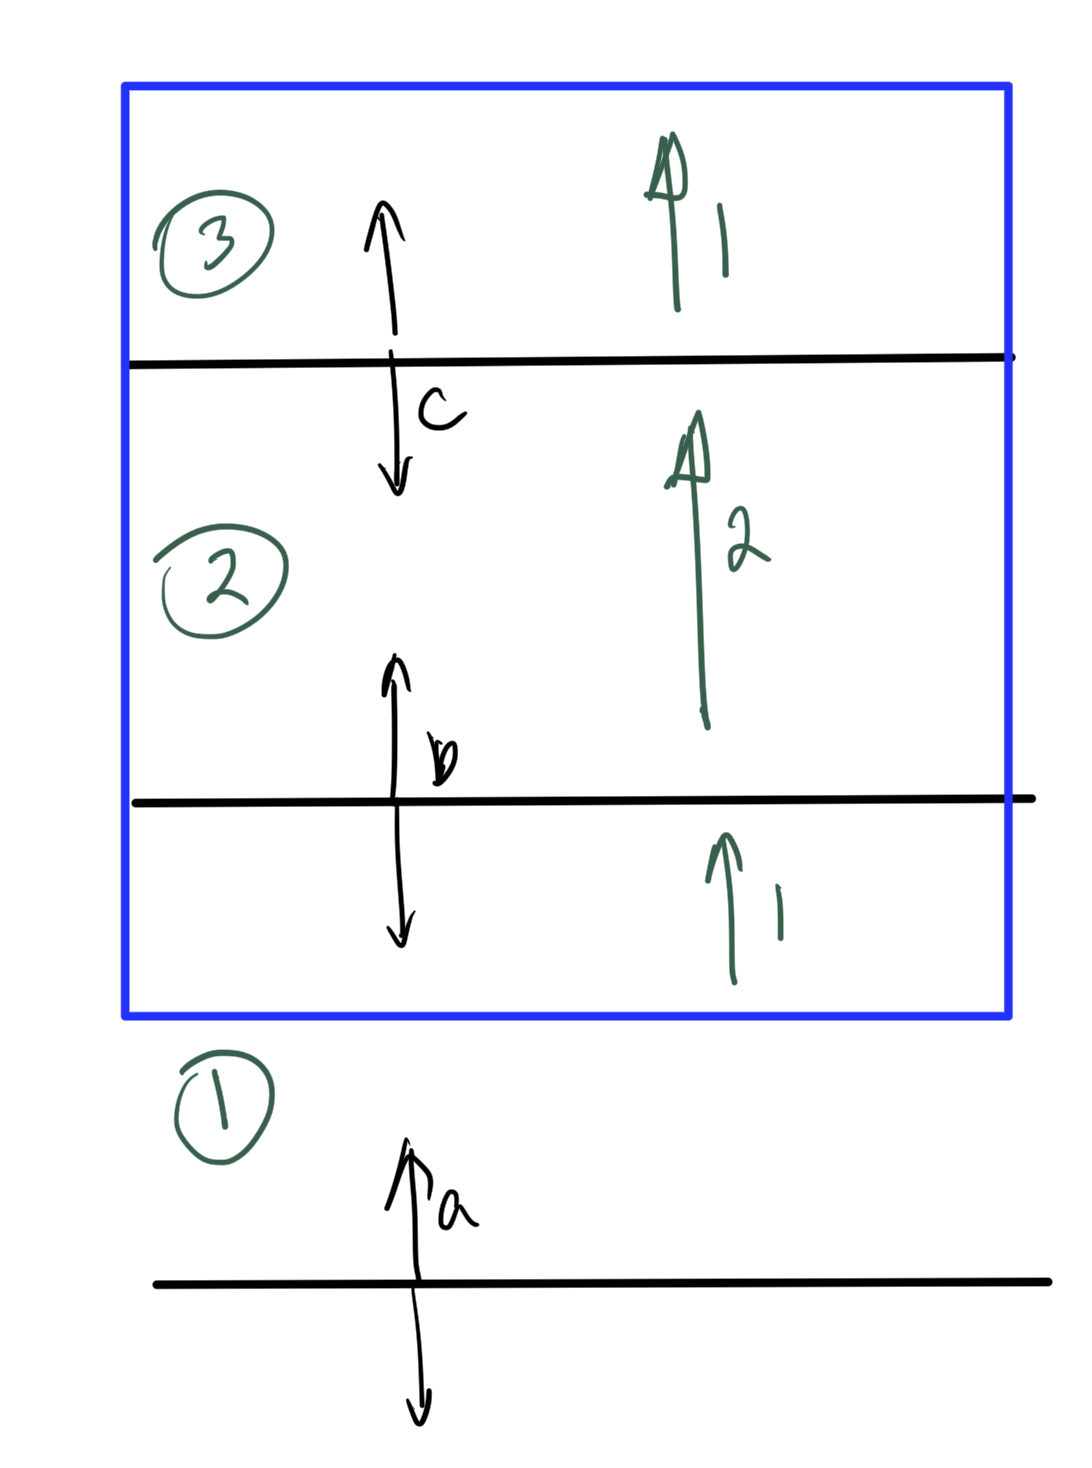 3
1
c
2
2
b
1
1
a